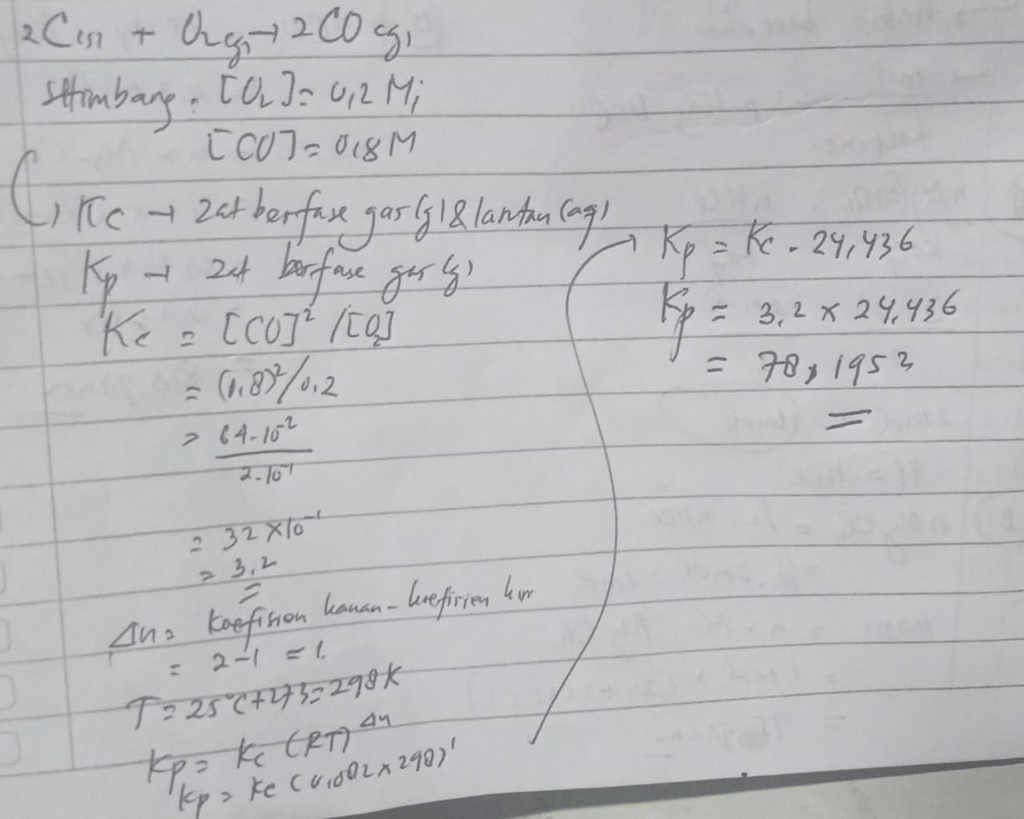 2C(s) + O₂(g) → 2CO(g)
Sttimbang : [O₂] = 0,2 M;
[CO] = 0,8 M
Kc → zat berfase gas (g) & larutan (aq)
Kp → zat berfase gas (g)
Kc = [CO]² / [O₂]
= (0.8)²/0.2
= 64-10⁻² / 2-10⁻¹
= 32 × 10⁻¹
= 3,2
Δn = koefisien kanan - koefisien kiri
= 2-1 = 1.
T = 25°C + 273 = 298 K
Kp = Kc (RT)^Δn
Kp = Kc (0,082 × 298)¹
→ Kp = Kc - 24,436
Kp = 3,2 × 24,436
= 78,1952